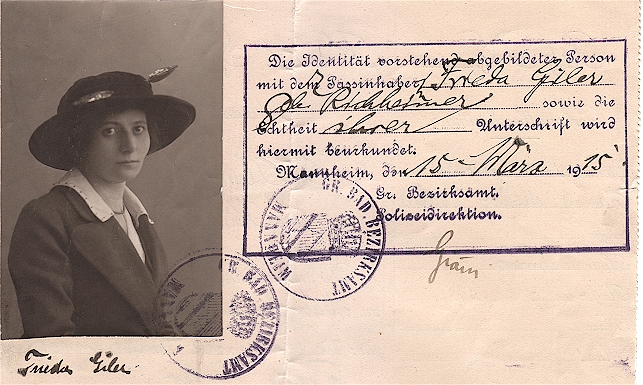 Die Identität vorstehend abgebildeter Person
mit dem Passinhaber Frieda Giler
geb. sowie die
Echtheit ihrer Unterschrift wird
hiermit beurkundet.
Mannheim, den 15 März 1915
Gr. Bezirksamt.
Polizeidirektion.
GR. BAD. BEZIRKSAMT MANNHEIM
GR. BAD. BEZIRKSAMT
Frieda Giler.